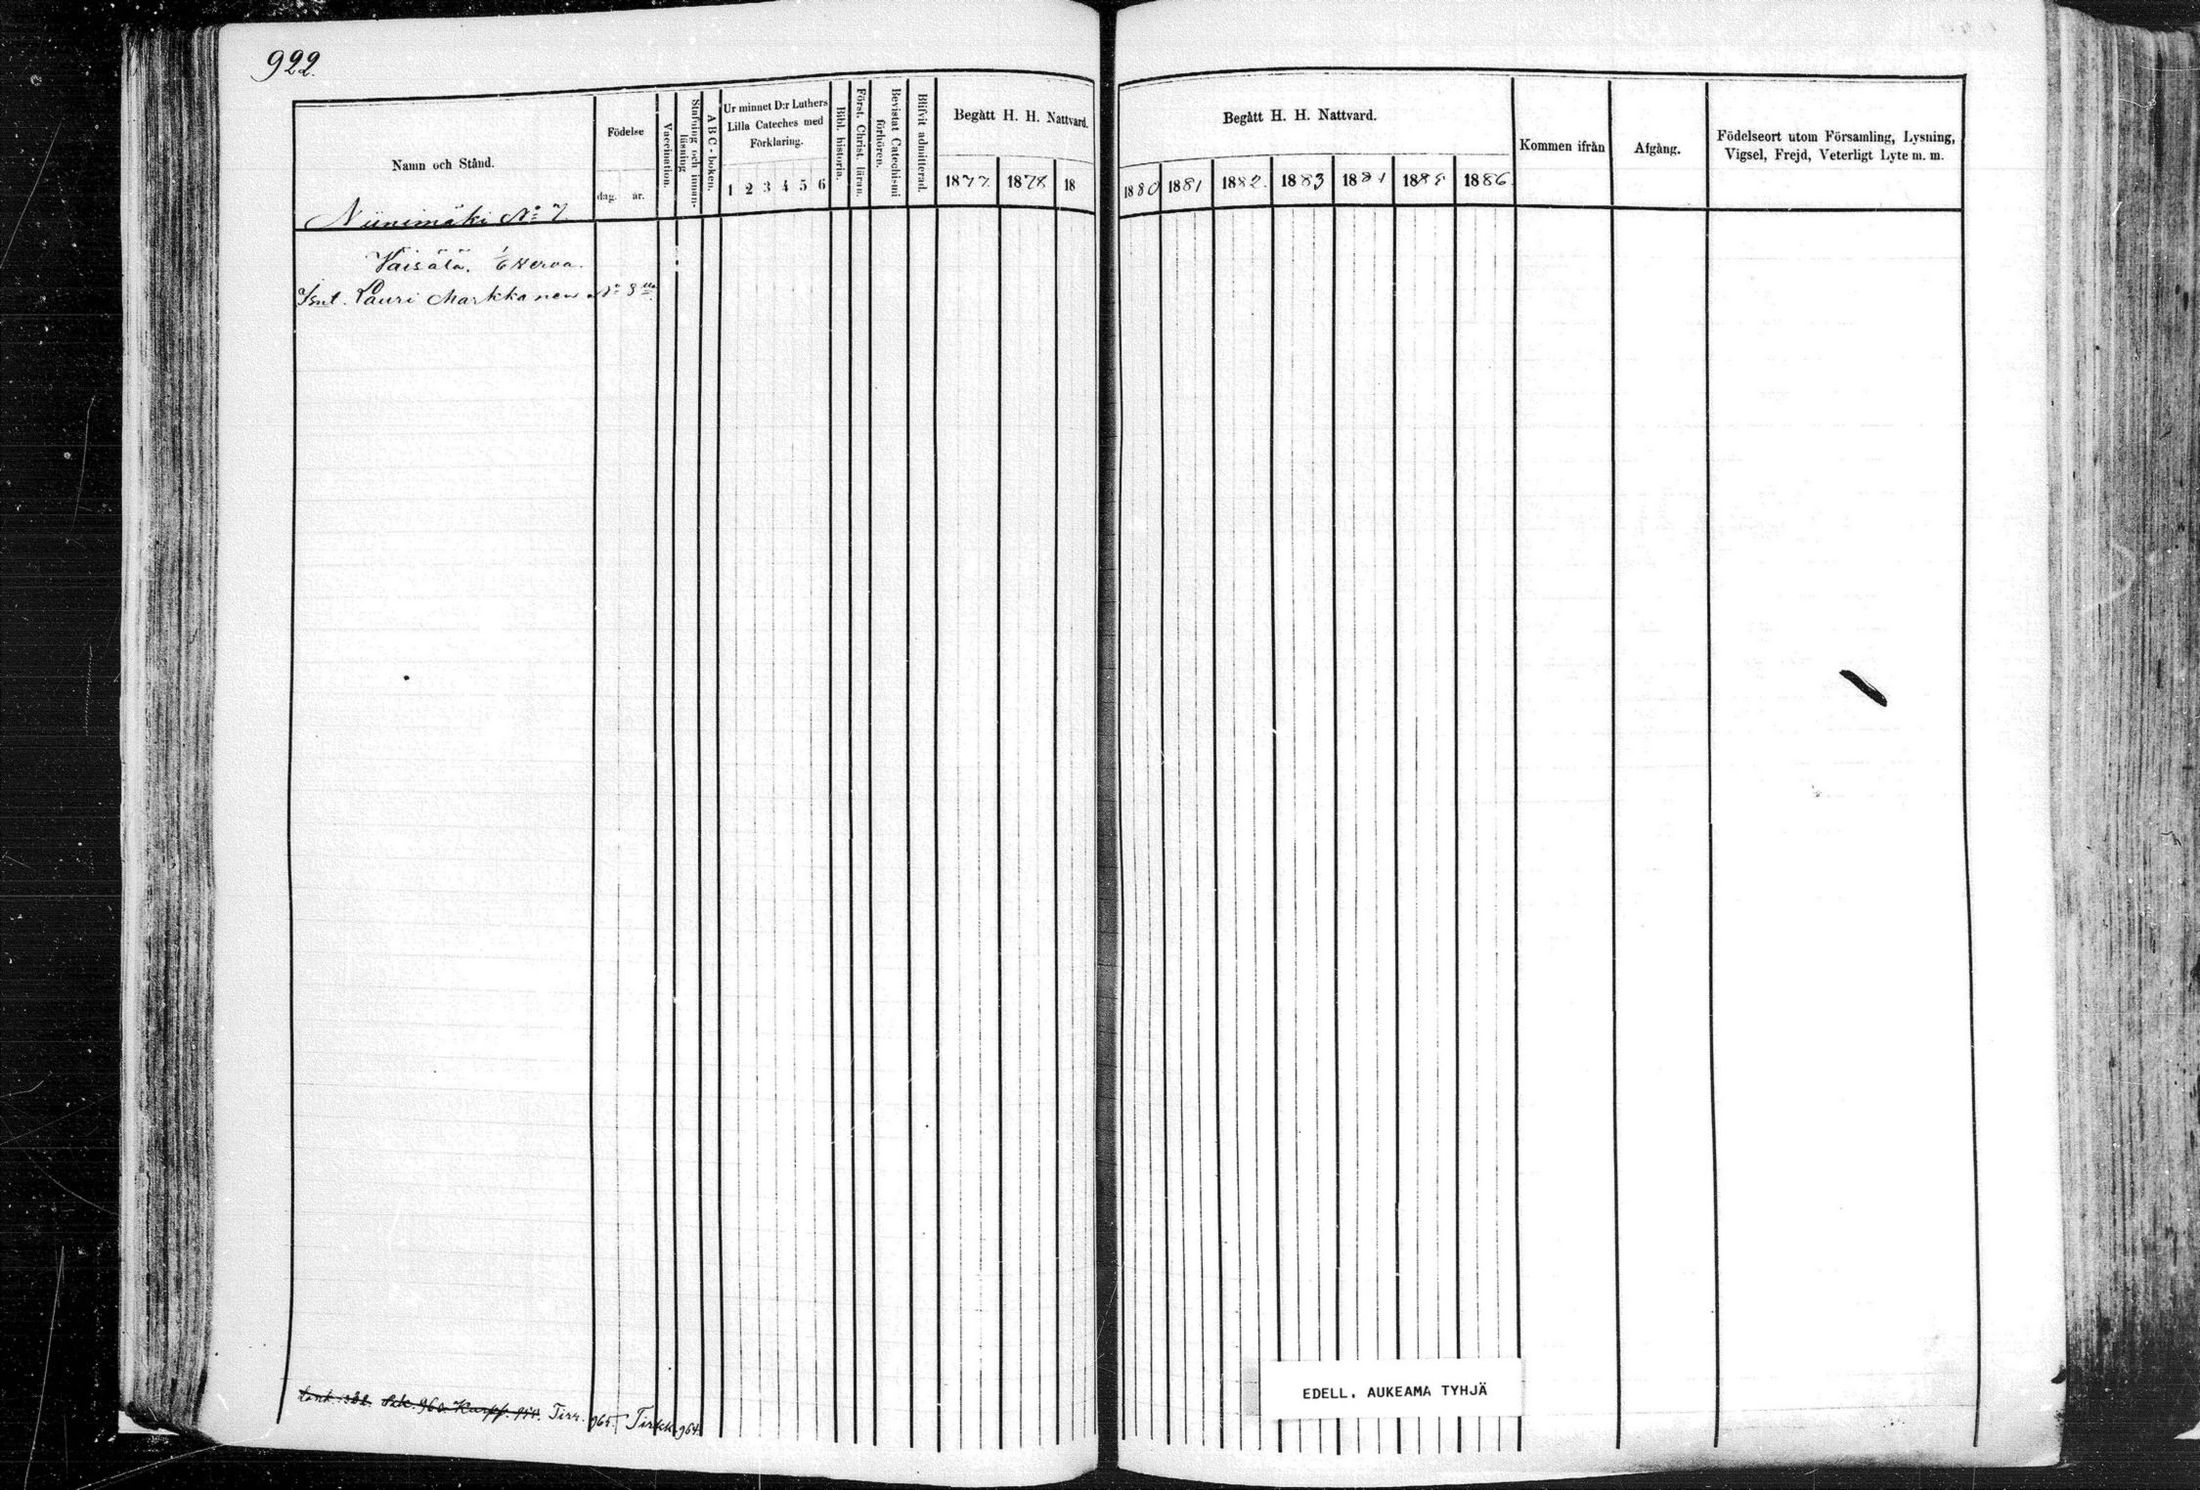 922.
Namn och Stånd.
Födelse
dag. år.
Vaccination.
Stafning och innan-läsning
A B C - boken.
Ur minnet D:r Luthers
Lilla Cateches med
Förklaring.
1 2 3 4 5 6
Bibl. historia.
Först. Christ. läran.
Bevistat Catechismi
förhören.
Blifvit admitterad.
Begått H. H. Nattvard.
1877. 1878 18
Niinimäki № 7
Väisälä.
Lauri Markkanen № 8
960. Karpp. Tirr. 965. Tirkk. 964.
Begått H. H. Nattvard.
1880 1881 1882. 1883 1884 1885 1886.
Kommen ifrån
Afgång.
Födelseort utom Församling, Lysning,
Vigsel, Frejd, Veterligt Lyte m. m.
EDELL. AUKEAMA TYHJÄ